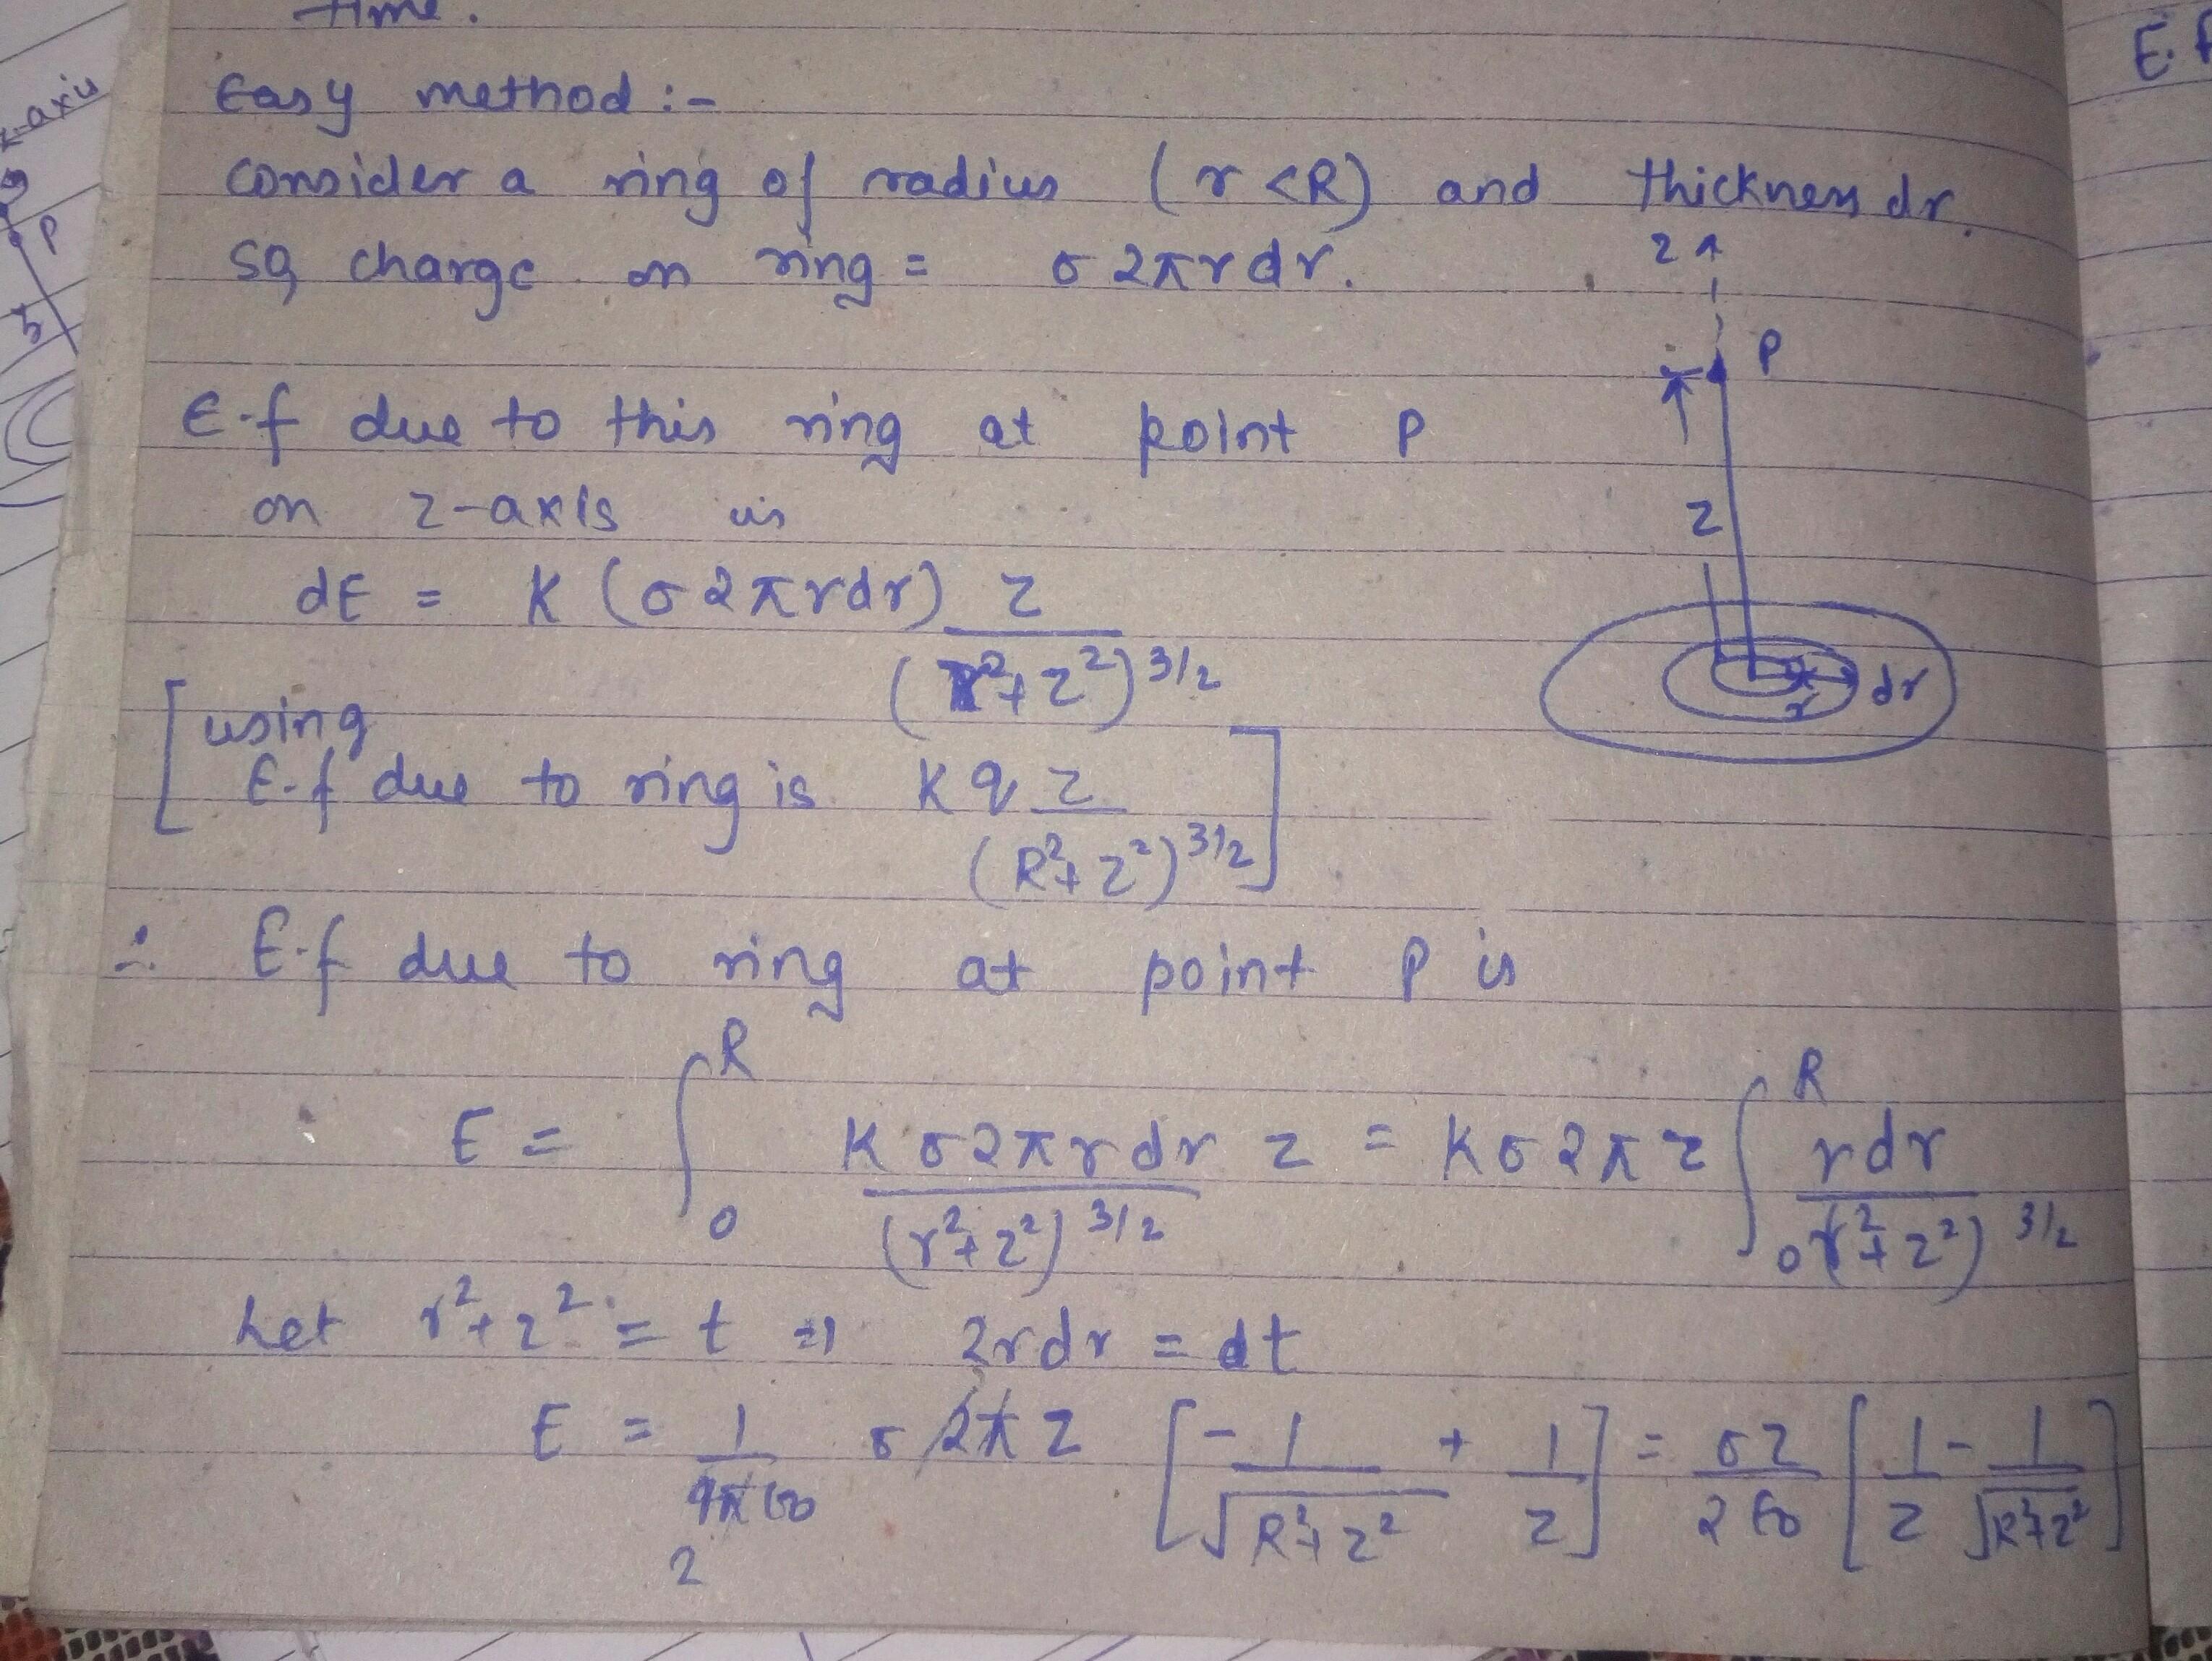 time.
Easy method :-
consider a ring of radius (r <R) and thickness dr.
so, charge on ring = σ 2πrdr.
E.f due to this ring at point P
on z-axis is
dE = K (σ2πrdr) z / (r²+z²)^3/2
[using
E.f due to ring is Kqz / (R²+z²)^3/2]
∴ E.f due to ring at point P is
E = ∫₀^R Kσ2πrdr z / (r²+z²)^3/2 = Kσ2πz ∫₀^R rdr / (r²+z²)^3/2
Let r²+z² = t ⇒ 2rdr = dt
E = 1/4π∈₀ σ2πz [-1/√R²+z² + 1/z] = σz/2∈₀ [1/z - 1/√R²+z²]
2
z
P
z
r
dr
z-axis
P